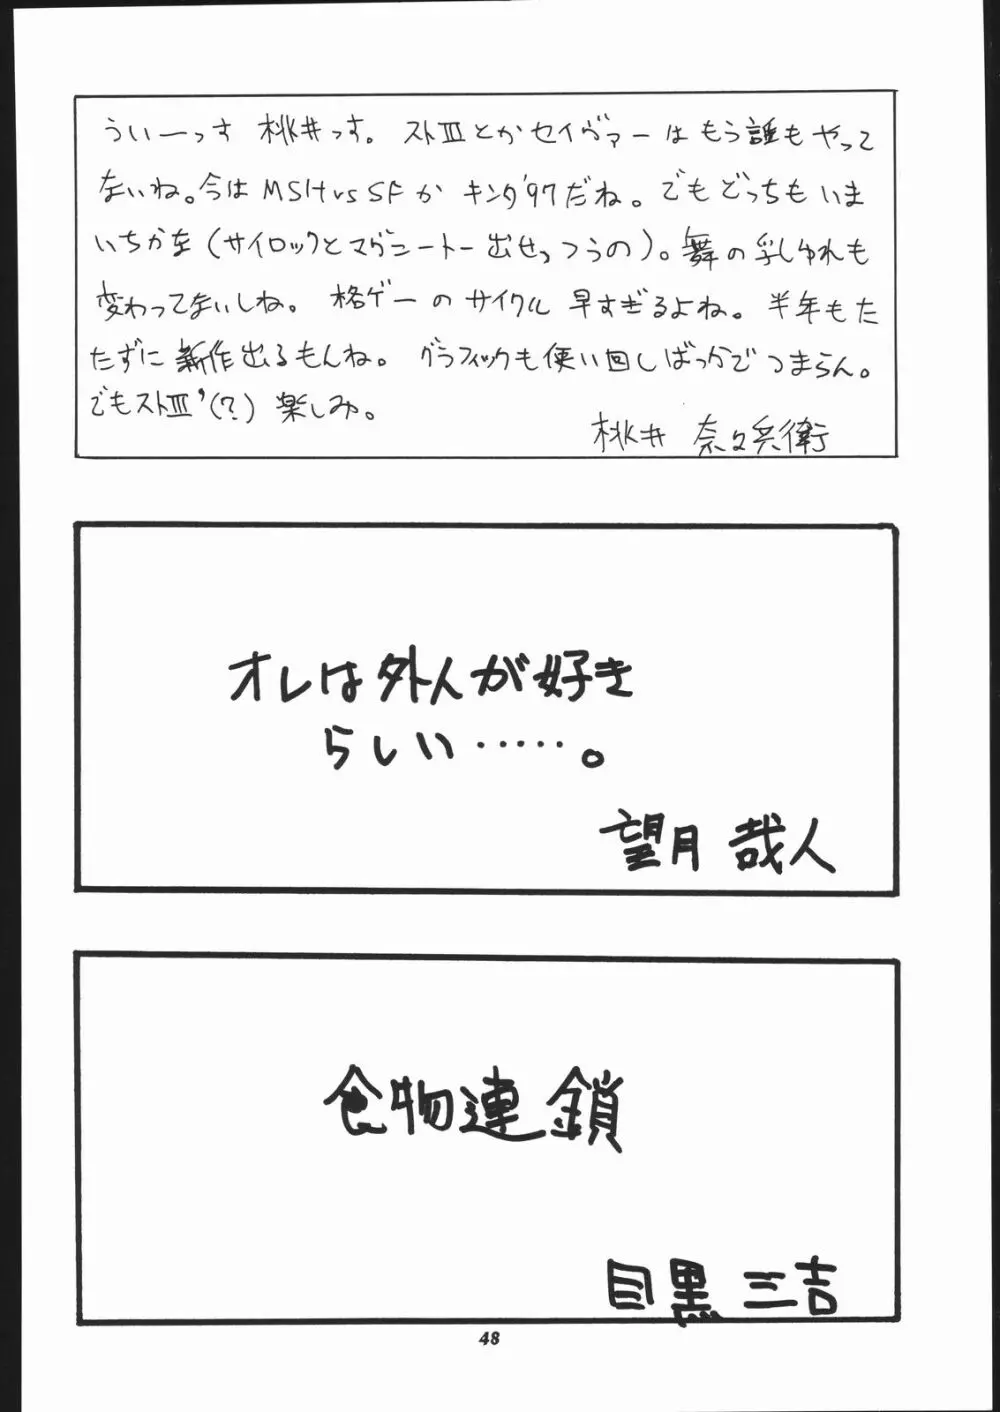 ういーっす 桃井っす。ストⅢとかセイヴァーはもう誰もやって
ないね。今はMSHvsSFかキング'97だね。でもどっちもいま
いちかな(サイロックとマグニートー出せっつうの)。舞の乳しゅれも
変わってないしね。格ゲーのサイクル早すぎるよね。半年もた
たずに新作出るもんね。グラフィックも使い回しばっかでつまらん。
でもストⅢ'(?)楽しみ。
桃井 奈々兵衛
オレは外人が好き
らしい……。
望月 哉人
食物連鎖
目黒 三吉
48